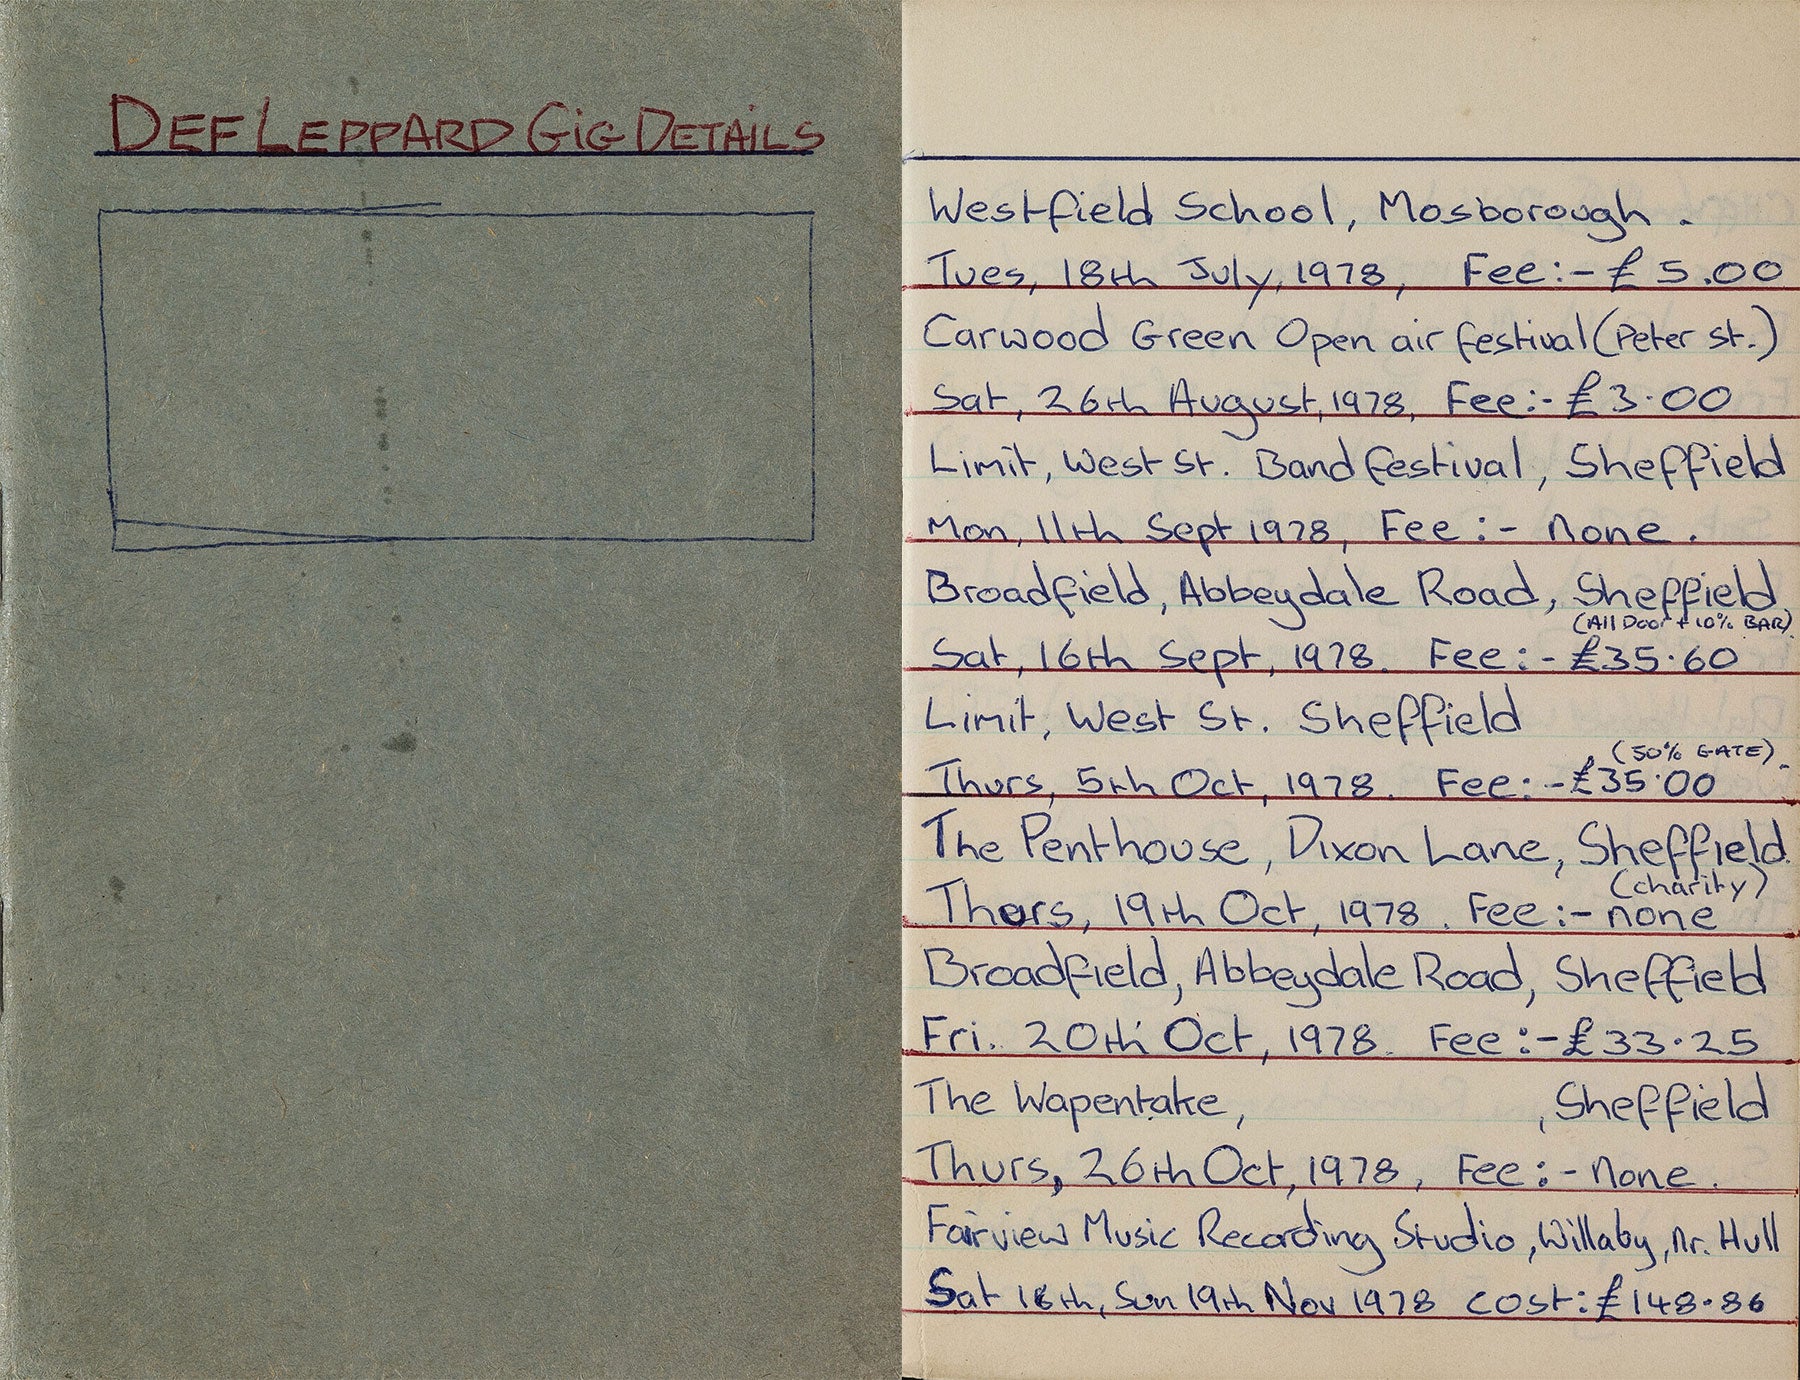 DEF LEPPARD GIG DETAILS
Westfield School, Mosborough.
Tues, 18th July, 1978, Fee:- £5.00
Carwood Green Open air festival (Peter St.)
Sat, 26th August, 1978, Fee:- £3.00
Limit, West St. Band festival, Sheffield
Mon, 11th Sept 1978, Fee:- none.
Broadfield, Abbeydale Road, Sheffield,
(All Door + 10% BAR)
Sat, 16th Sept, 1978. Fee:- £35.60
Limit, West St. Sheffield
(50% GATE).
Thurs, 5th Oct, 1978. Fee:- £35.00
The Penthouse, Dixon Lane, Sheffield.
(charity)
Thurs, 19th Oct, 1978. Fee:- none
Broadfield, Abbeydale Road, Sheffield
Fri. 20th Oct, 1978. Fee:- £33.25
The Wapentake, , Sheffield
Thurs, 26th Oct, 1978, Fee:- none.
Fairview Music Recording Studio, Willaby, nr. Hull
Sat 18th, Sun 19th Nov 1978 COST: £148.86